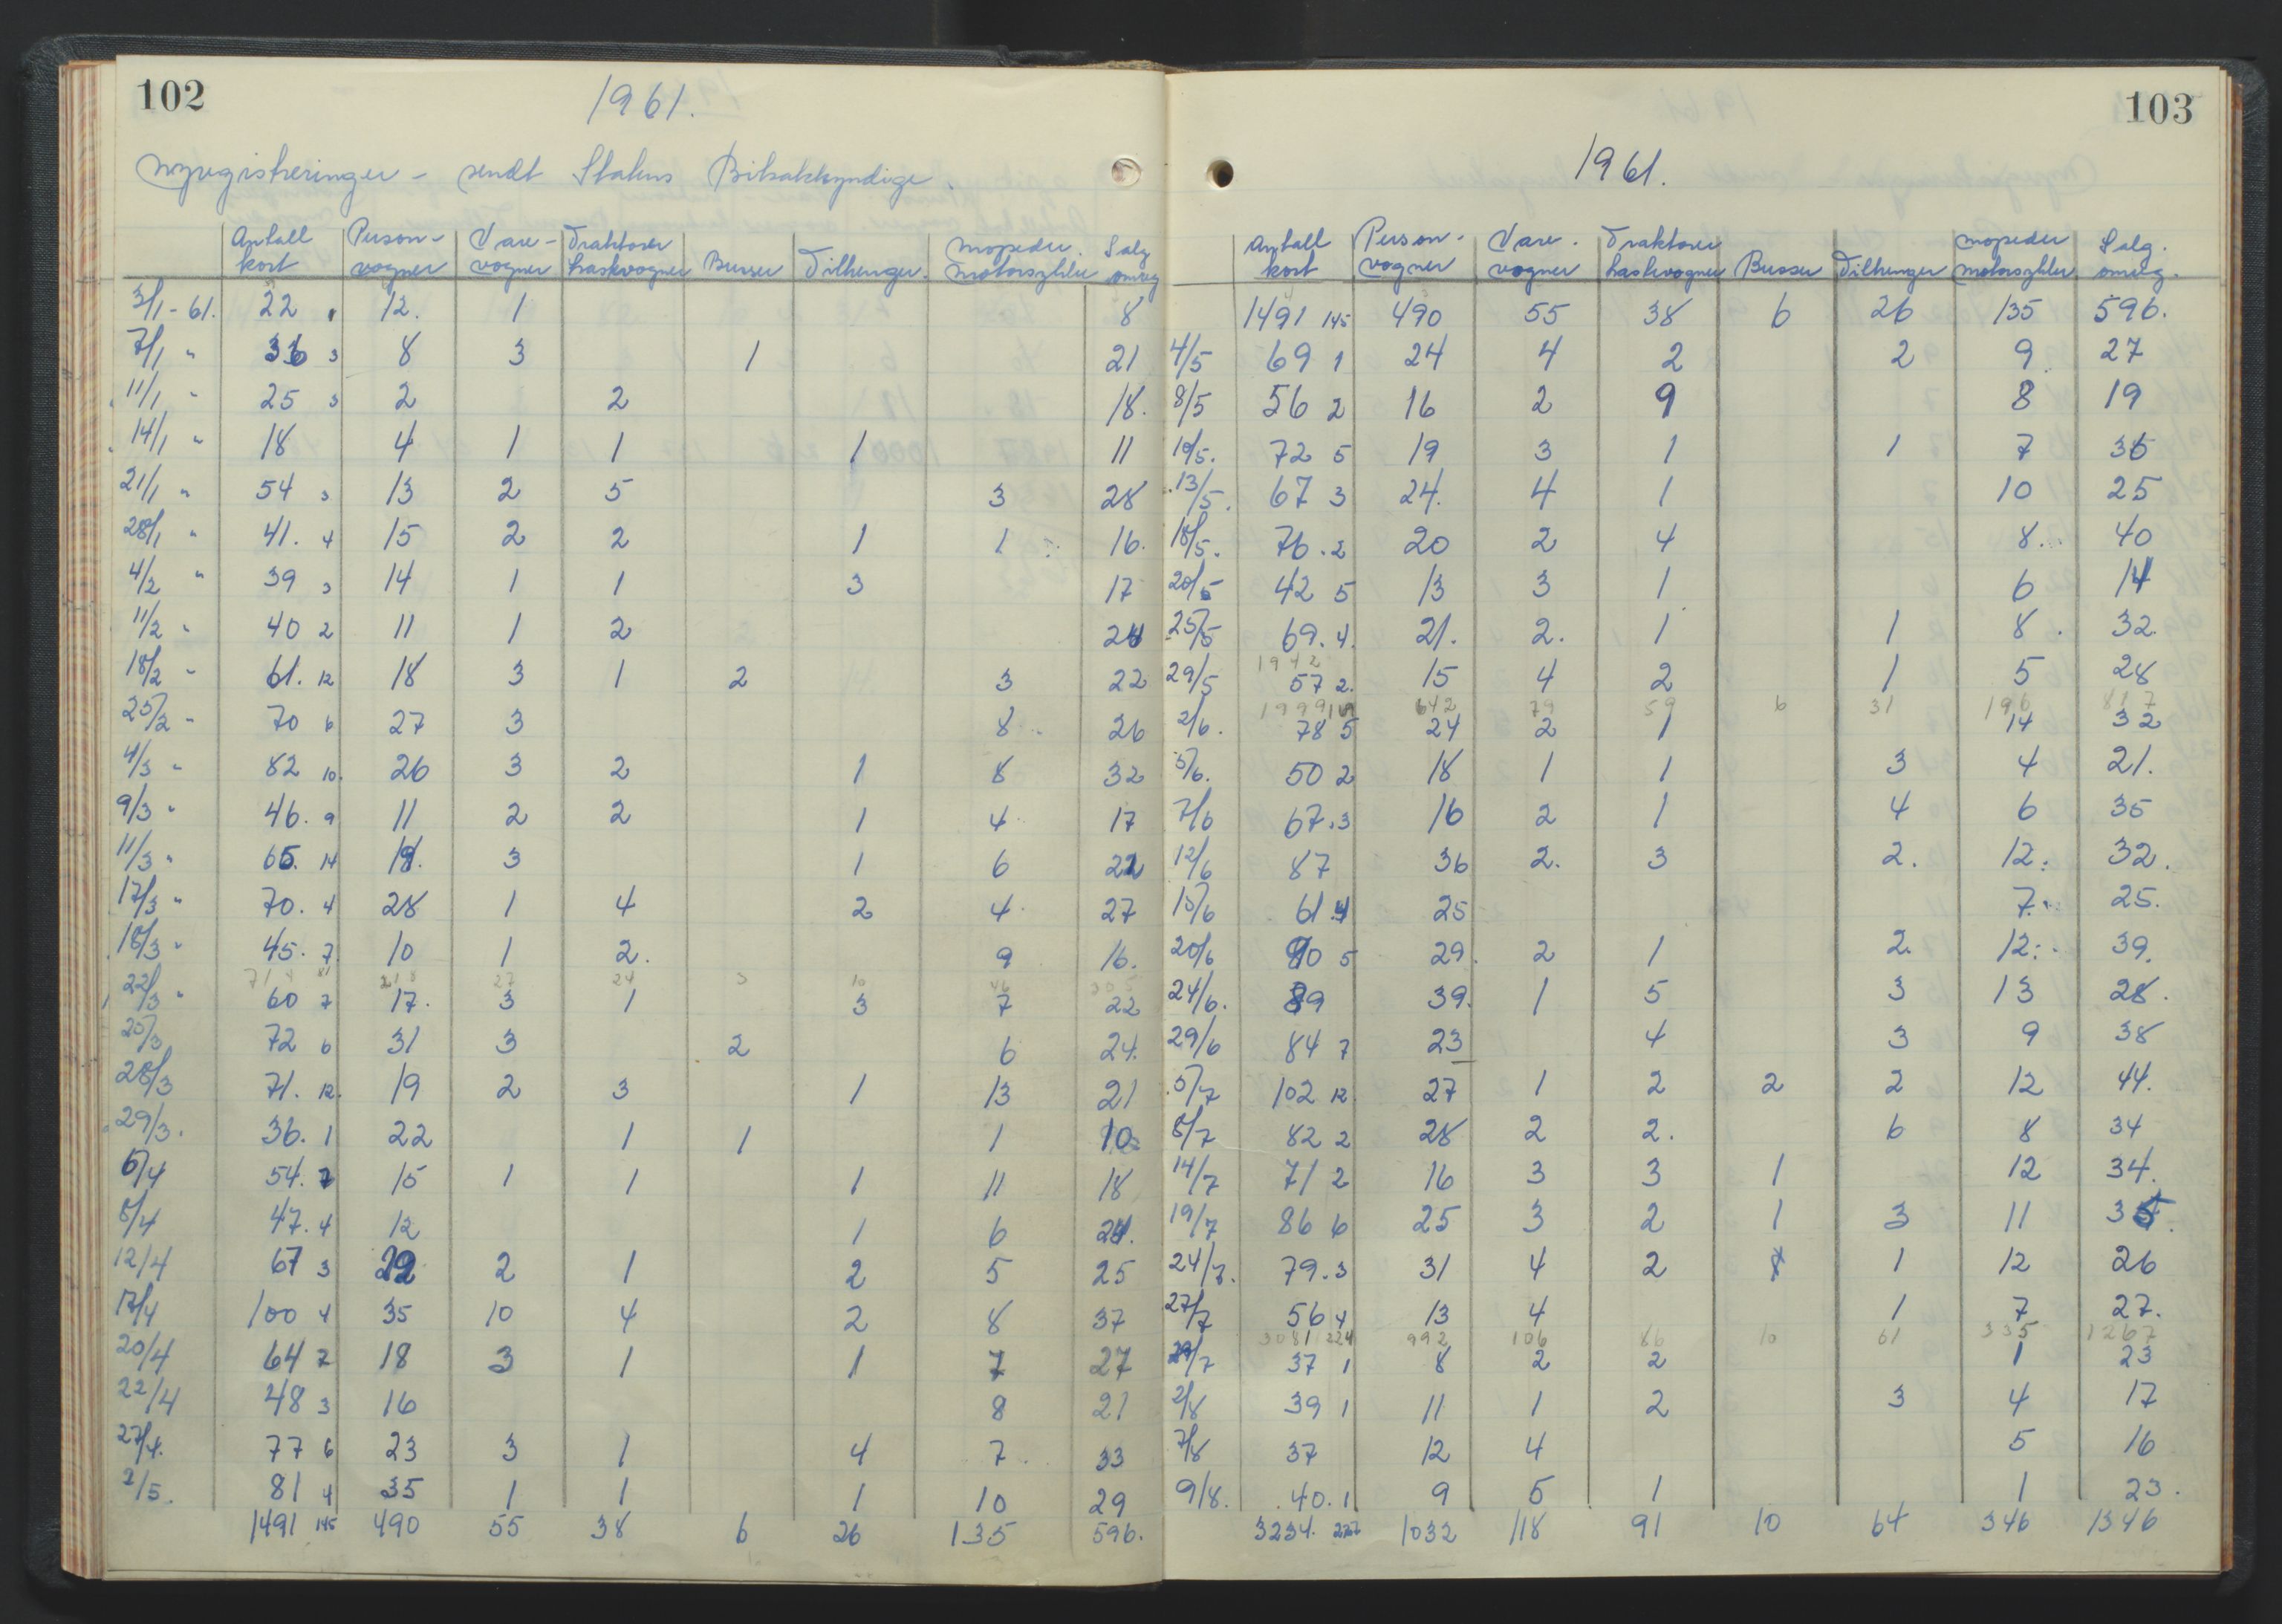 102
1961.
Nyregistreringer - sendt Statens Bilsakkyndige.
Antall kort Person-vogner Vare-vogner Traktorer Lastevogner Busser Tilhenger. Mopeder. Motorsykler Salg omreg
3/1-61. 22 12. 1 8
7/1 " 36 3 8 3 1 21
11/1 " 25 3 2 2 18.
14/1 " 18 4 1 1 1 11
21/1 " 54 3 13 2 5 3 28
28/1 " 41. 4 15 2 2 1 1 16.
4/2 " 39 3 14 1 1 3 17
11/2 " 40 2 11 1 2 24
18/2 " 61. 12 18 3 1 2 3 22
25/2 " 70 6 27 3 8 26
4/3 " 82 10. 26 3 2 1 8 32
9/3 " 46. 9 11 2 2 1 4 17
11/3 " 65. 14 19. 3 1 6 22
17/3 " 70. 4 28 1 4 2 4 27
18/3 " 45. 7. 10 1 2. 9 16.
81 218 27 24 3 10 46 305
22/3 " 60 7 17. 3 1 3 7 22
25/3 72 6 31 3 2 6 24.
28/3 71. 12. 19 2 3 1 13 21
29/3. 36. 1 22 1 1 1 10
5/4 54. 7 15 1 1 1 11 18
8/4 47. 4 12 1 6 24.
12/4 67 3 29 2 1 2 5 25
17/4 100 4 35 10 4 2 8 37
20/4 64 7 18 3 1 1 7 27
22/4 48 3 16 8 21
27/4. 77 6 23 3 1 4 7 33
2/5. 81 4 35 1 1 1 10 29
1491 145 490 55 38 6 26 135 596.
103
1961.
Antall kort Person-vogner Vare-vogner Traktorer Lastevogner Busser Tilhenger Mopeder Motorsykler Salg. omreg.
1491 145 490 55 38 6 26 135 596.
4/5 69 1 24 4 2 2 9 27
8/5 56 2 16 2 9 8 19
10/5. 72 5 19 3 1 1 7 36
13/5. 67 3 24. 4 1 10 25
18/5. 76. 2 20 2 4 8. 40
20/5 42 5 13 3 1 6 14
25/5 69. 4. 21. 2. 1 1 8. 32.
1942
29/5 57 2. 15 4 2 1 5 28
1999 642 79 59 6 31 196 817
2/6. 78 5 24 2 1 14 32
5/6. 50 2 18 1 1 3 4 21.
7/6 67. 3 16 2 1 4 6 35
12/6 87 36 2. 3 2. 12. 32.
15/6 61. 4 25 7. 25.
20/6 90 5 29. 2 1 2. 12. 39.
24/6. 89 39. 1 5 3 13 28.
29/6 84 7 23 4 3 9 38
5/7 102 12. 27 1 2 2 2 12 44.
8/7 82 2 28 2 2. 6 8 34
14/7 71 2 16 3 3 1 12 34.
19/7 86 6 25 3 2 1 3 11 35.
24/7. 79. 3 31 4 2 1 12 26
27/7 56 4 13 4 1 7 27.
3081 224 992 106 86 10 61 335 1267
29/7 37 1 8 2 2 1 23
2/8 39 1 11 1 2 3 4 17
7/8 37 12 4 5 16
9/8. 40. 1 9 5 1 1 23.
3234. 227 1032 118 91 10 64 346 1346